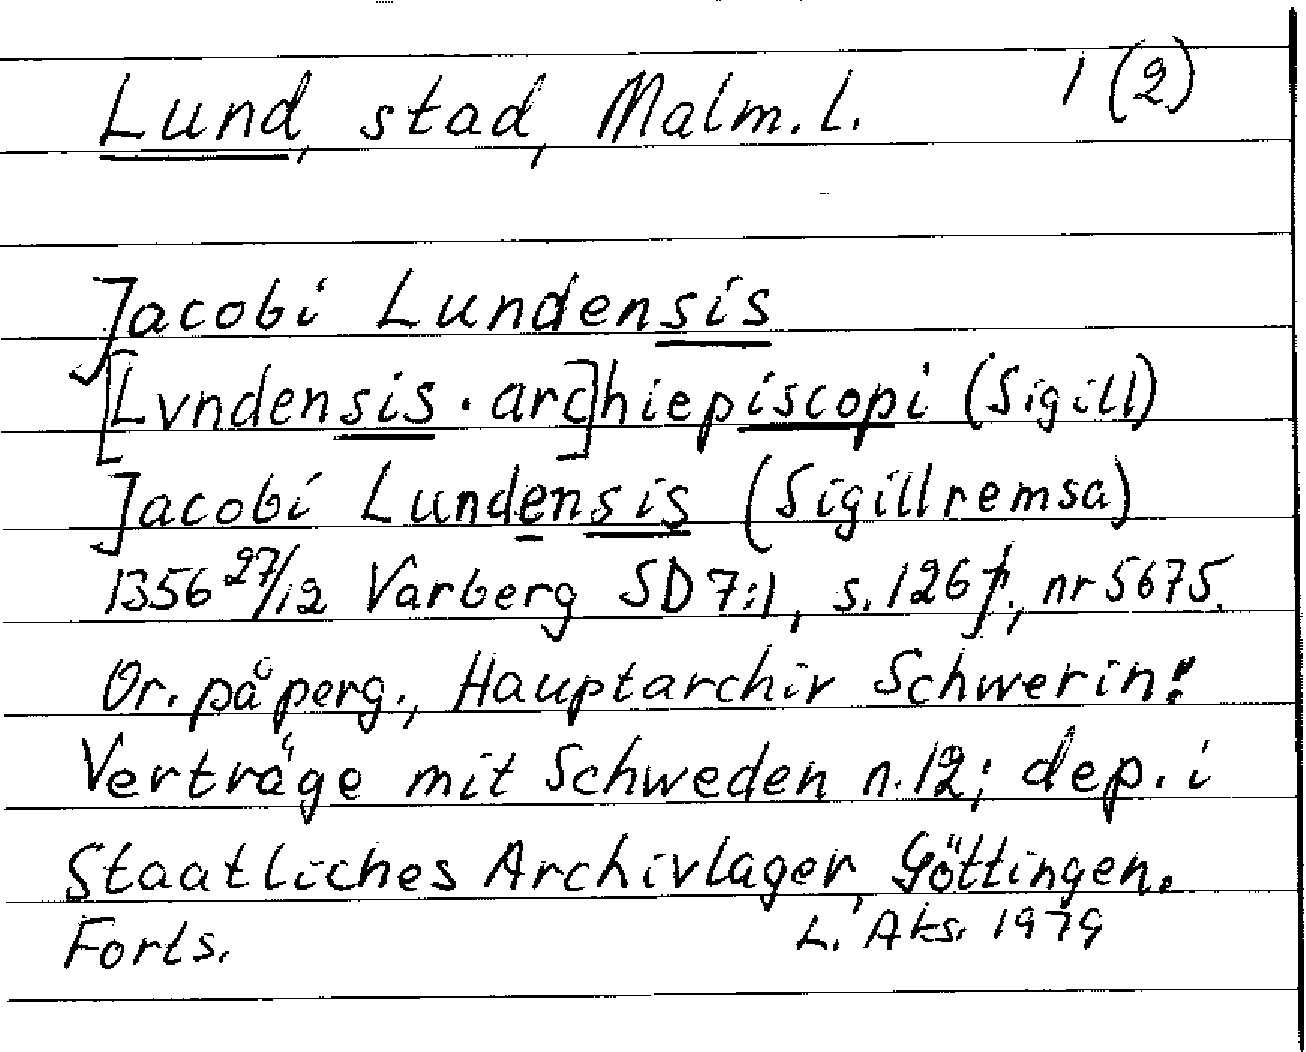 Lund, stad, Malm. L. 1 (2)
Jacobi Lundensis
[Lvndensis. arc]hiepiscopi (Sigill)
Jacobi Lundensis (Sigillremsa)
1356 27/12 Varberg SD 7:1, s. 126 f., nr 5675.
Or. på perg., Hauptarchiv Schwerin:
Verträge mit Schweden n. 12; dep. i
Staatliches Archivlager, Göttingen.
Forts. L. Aks. 1979